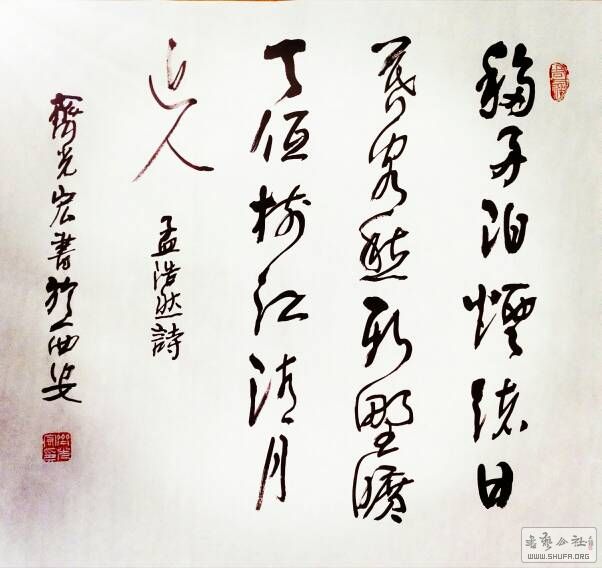 移舟泊煙渚日
暮客愁新野曠
天低樹江清月
近人
孟浩然詩
齊光宏書於西安
WWW.SHUFA.ORG